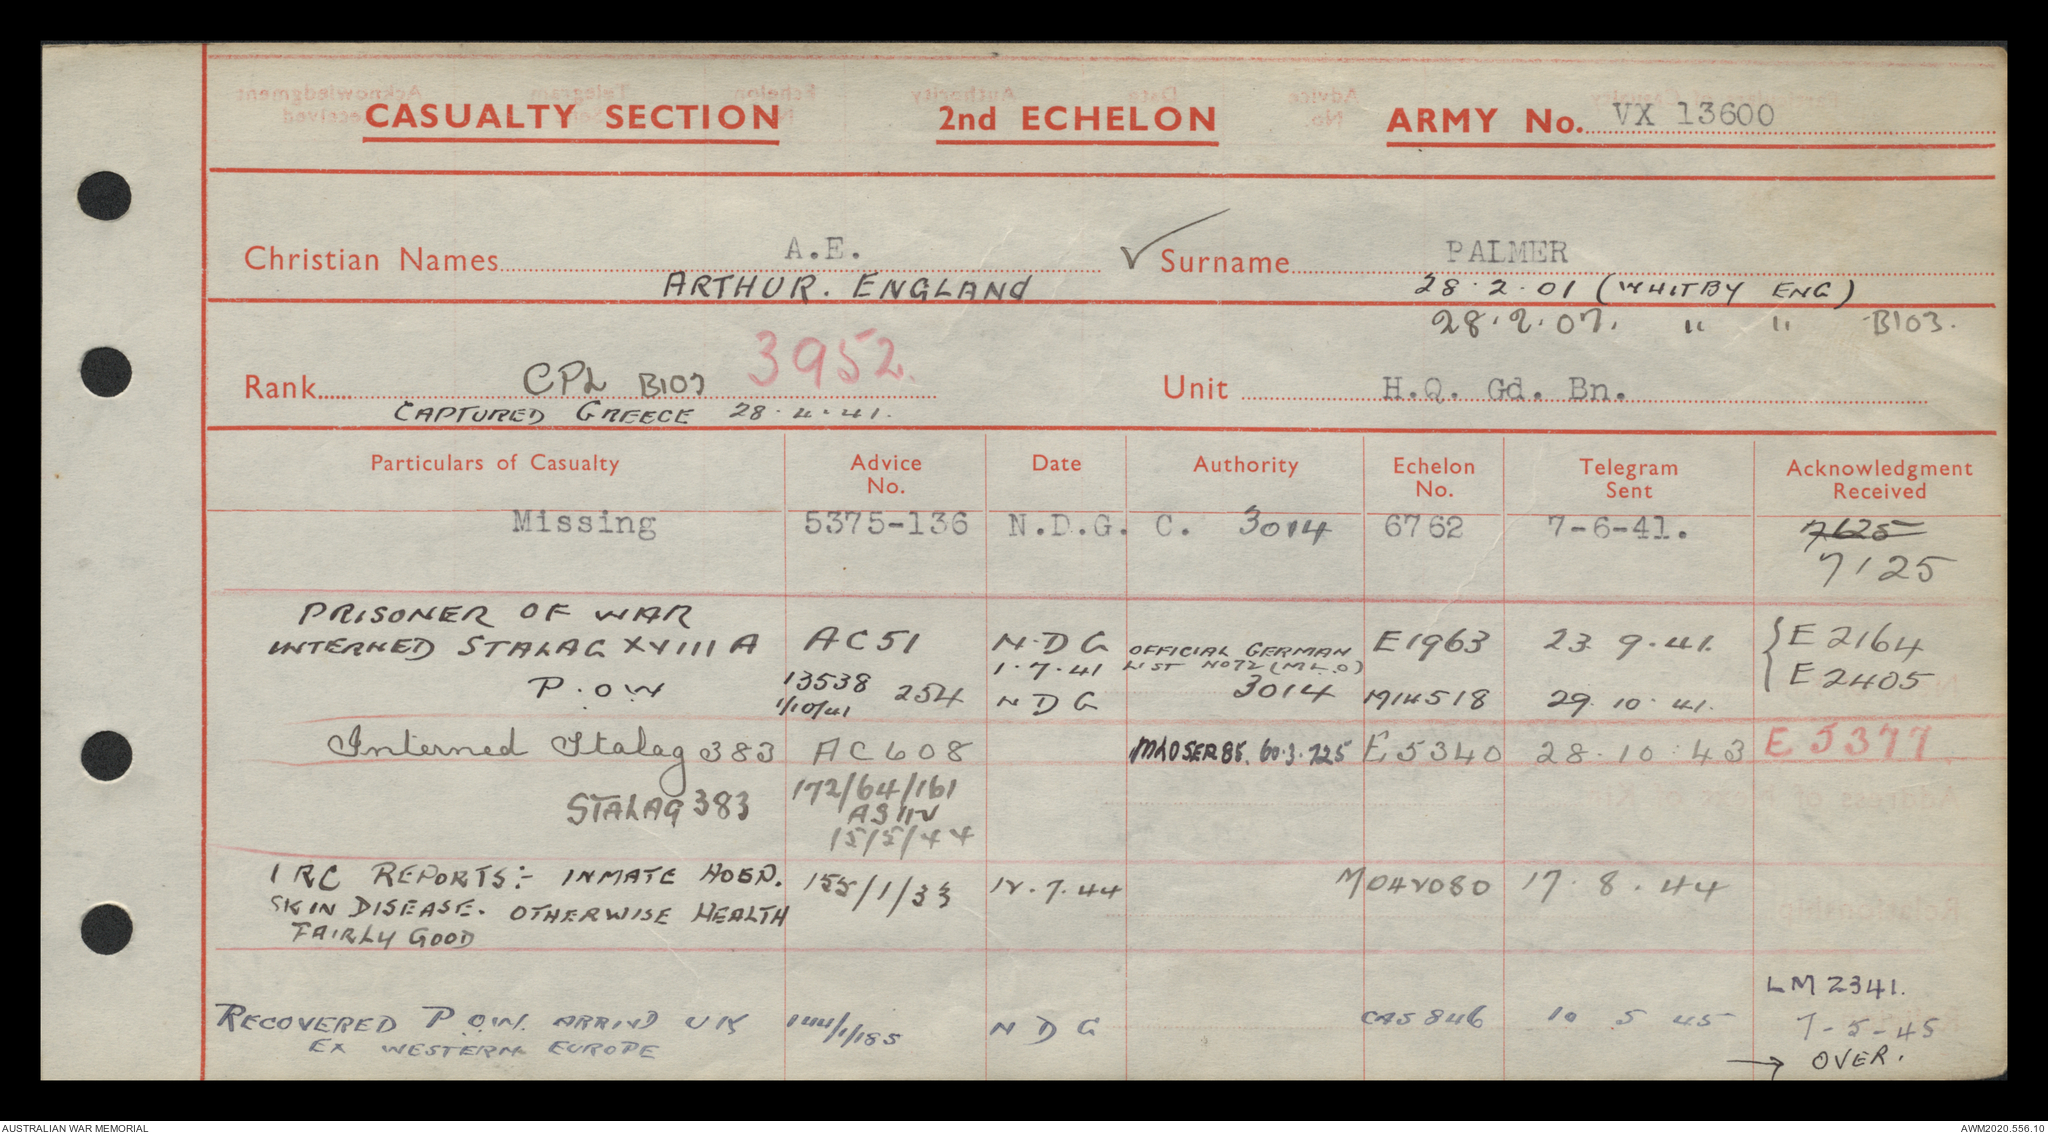 CASUALTY SECTION 2nd ECHELON ARMY No. VX 13600
Christian Names A.E. Surname PALMER
ARTHUR. ENGLAND 28.2.01 (WHITBY ENG)
28.2.07. " " B103.
Rank CPL B103 3952. Unit H.Q. Gd. Bn.
CAPTURED GREECE 28.4.41.
Particulars of Casualty Advice No. Date Authority Echelon No. Telegram Sent Acknowledgment Received
Missing 5375-136 N.D.G. C. 3014 6762 7-6-41. 7625
7125
PRISONER OF WAR
INTERNED STALAG XVIII A AC51 N.D.G OFFICIAL GERMAN E1963 23 9.41. E2164
1.7.41 LIST NO 72 (M.L.O)
P.O.W 13538 254 N D G 3014 M14518 29.10.41. E2405
1/10/41
Interned Stalag 383 AC608 MLO SER 85. 60.3.725 E5340 28.10.43 E5377.
STALAG 383 172/64/161
15/5/44
IRC REPORTS:- INMATE HOSP. 155/1/33 12.7.44 17.8.44
SKIN DISEASE. OTHERWISE HEALTH
FAIRLY GOOD
LM2341.
RECOVERED P.O.W. ARRIVD UK 144/1/185 N D G CAS 846 10 5 45 7-5-45
EX WESTERN EUROPE
→ OVER.
AUSTRALIAN WAR MEMORIAL AWM2020.556.10